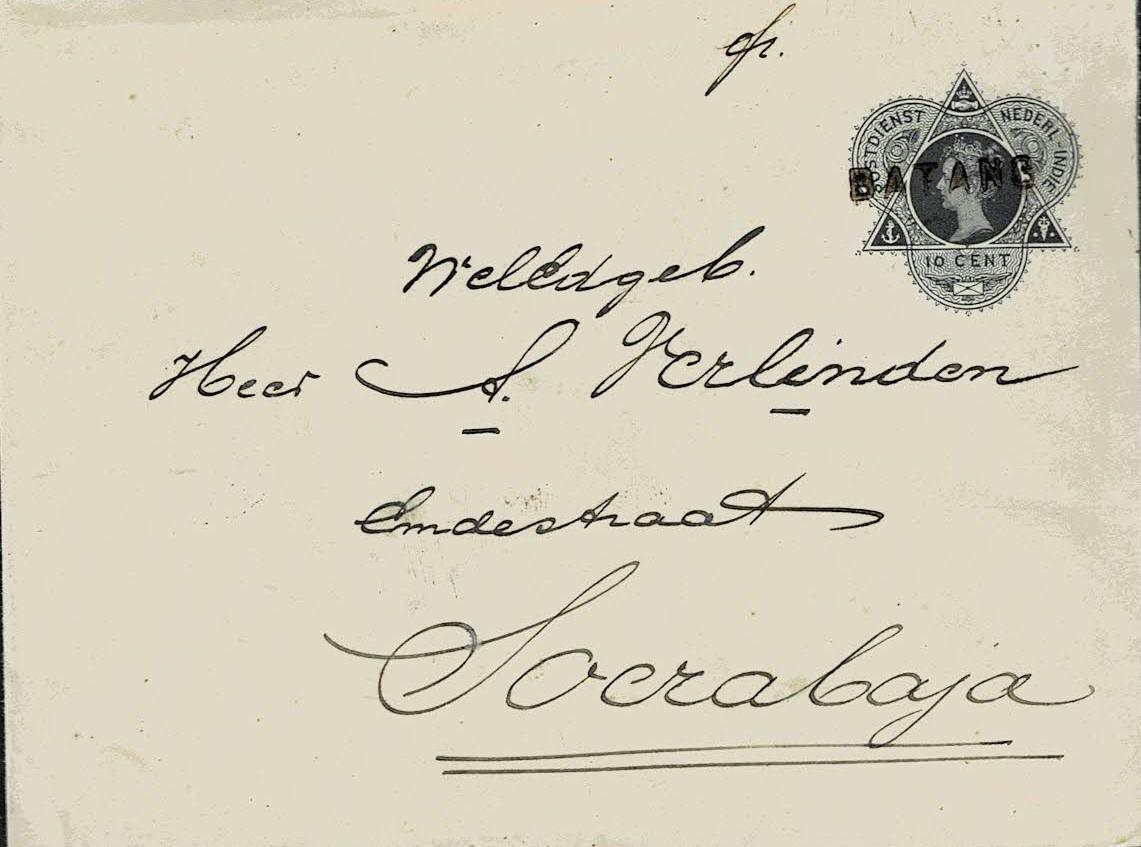 POSTDIENST NEDERL-INDIE
BATANG
10 CENT
WelEdgeb.
Heer A. Verlinden
Emdestraat
Soerabaja